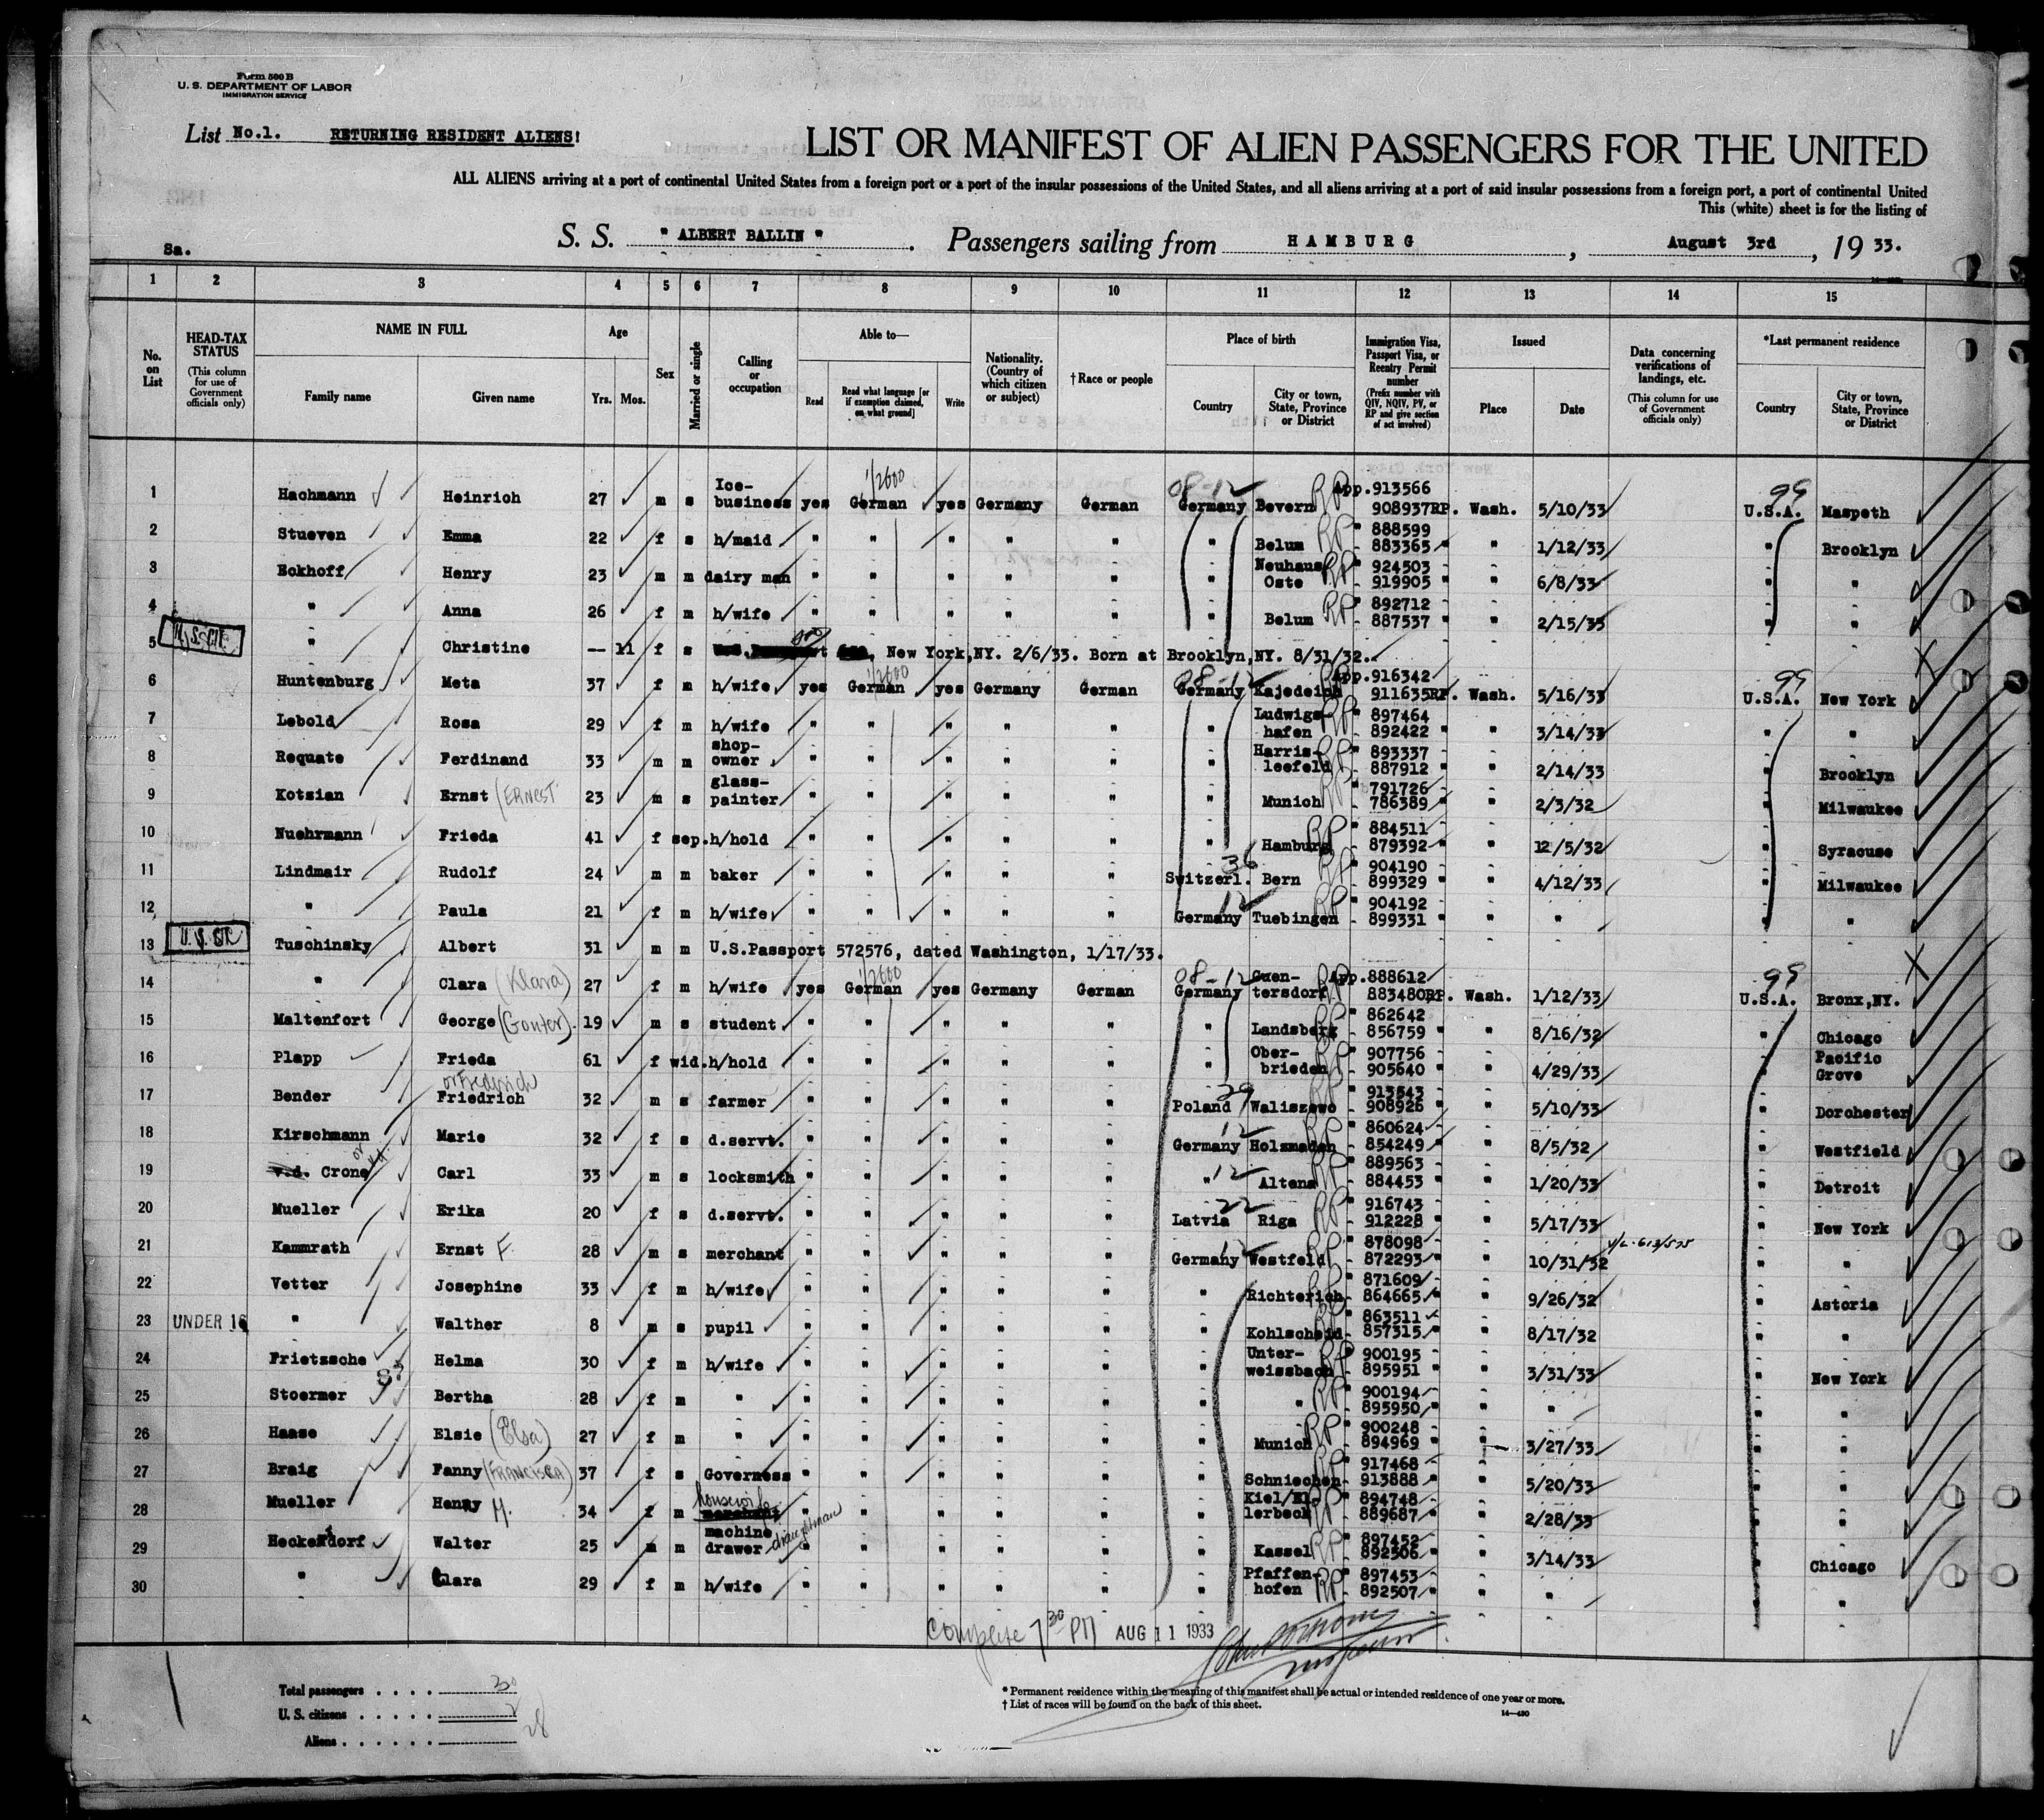 Form 500 B
U. S. DEPARTMENT OF LABOR
IMMIGRATION SERVICE
List No.1. RETURNING RESIDENT ALIENS!
LIST OR MANIFEST OF ALIEN PASSENGERS FOR THE UNITED
ALL ALIENS arriving at a port of continental United States from a foreign port or a port of the insular possessions of the United States, and all aliens arriving at a port of said insular possessions from a foreign port, a port of continental United
This (white) sheet is for the listing of
Sa. S. S. " ALBERT BALLIN ". Passengers sailing from HAMBURG, August 3rd, 19 33.
1 2 3 4 5 6 7 8 9 10 11 12 13 14 15
No. on List
HEAD-TAX STATUS (This column for use of Government officials only)
NAME IN FULL Family name Given name
Age Yrs. Mos.
Sex
Married or single
Calling or occupation
Able to— Read Read what language [or if exemption claimed, on what ground] Write
Nationality. (Country of which citizen or subject)
† Race or people
Place of birth Country City or town, State, Province or District
Immigration Visa, Passport Visa, or Reentry Permit number (Prefix number with QIV, NQIV, PV, or RP and give section of act involved)
Issued Place Date
Data concerning verifications of landings, etc. (This column for use of Government officials only)
*Last permanent residence Country City or town, State, Province or District
1 Hachmann Heinrich 27 m s Ice-business yes German 1/2600 yes Germany German 08-12 Germany Bevern RP App.913566 908937RP. Wash. 5/10/33 99 U.S.A. Maspeth
2 Stueven Emma 22 f s h/maid " " " " " " Belum RP " 888599 883365 " " 1/12/33 " Brooklyn
3 Eckhoff Henry 23 m m dairy man " " " " " " Neuhaus Oste RP " 924503 919905 " " 6/8/33 " "
4 " Anna 26 f m h/wife " " " " " " Belum RP " 892712 887537 " " 2/15/33 " "
U. S. CIT.
5 " Christine -- 11 f s New York,NY. 2/6/33. Born at Brooklyn,NY. 8/31/32.
6 Huntenburg Meta 37 f m h/wife yes German 1/2600 yes Germany German 08-12 Germany Kajedeich RP App.916342 911635RP. Wash. 5/16/33 99 U.S.A. New York
7 Lebold Rosa 29 f m h/wife " " " " " " Ludwigs-hafen RP " 897464 892422 " " 3/14/33 " "
8 Requate Ferdinand 33 m m shop-owner " " " " " " Harris-leefeld RP " 893337 887912 " " 2/14/33 " Brooklyn
9 Kotzian Ernst (ERNEST 23 m s glass-painter " " " " " " Munich RP " 791726 786389 " " 2/3/32 " Milwaukee
10 Nuehrmann Frieda 41 f sep. h/hold " " " " " " Hamburg RP " 884511 879392 " " 12/5/32 " Syracuse
11 Lindmair Rudolf 24 m m baker " " " " " 36 Switzerl. Bern RP " 904190 899329 " " 4/12/33 " Milwaukee
12 " Paula 21 f m h/wife " " " " " 12 Germany Tuebingen RP " 904192 899331 " " " " "
U. S. CIT.
13 Tuschinsky Albert 31 m m U.S.Passport 572576, dated Washington, 1/17/33.
14 " Clara (Klara) 27 f m h/wife yes German 1/2600 yes Germany German 08-12 Germany Guen-tersdorf RP App.888612 883480RP. Wash. 1/12/33 99 U.S.A. Bronx,NY.
15 Maltenfort George 19 m s student " " " " " " Landsberg RP " 862642 856759 " " 8/16/32 " Chicago
16 Plapp Frieda 61 f wid. h/hold " " " " " " Ober-brieden RP " 907756 905640 " " 4/29/33 " Pacific Grove
17 Bender or Frederich Friedrich 32 m s farmer " " " " " 29 Poland Waliszewo RP " 913543 908926 " " 5/10/33 " Dorchester
18 Kirschmann Marie 32 f s d.servt. " " " " " 12 Germany Holzmaden RP " 860624 854249 " " 8/5/32 " Westfield
19 v.d. Crone or v.d. Carl 33 m s locksmith " " " " " 12 " Altena RP " 889563 884453 " " 1/20/33 " Detroit
20 Mueller Erika 20 f s d.servt. " " " " " 22 Latvia Riga RP " 916743 912228 " " 5/17/33 " New York
21 Kammrath Ernst F. 28 m s merchant " " " " " 12 Germany Westfeld RP " 878098 872293 " " 10/31/32 V/L-613/575 " "
22 Vetter Josephine 33 f m h/wife " " " " " " Richterich RP " 871609 864665 " " 9/26/32 " Astoria
23 UNDER 16 " Walther 8 m s pupil " " " " " " Kohlscheid RP " 863511 857315 " " 8/17/32 " "
24 Frietzsche S? Helma 30 f m h/wife " " " " " " Unter-weissbach RP " 900195 895951 " " 3/31/33 " New York
25 Stoermer Bertha 28 f m " " " " " " " " RP " 900194 895950 " " " " "
26 Haase Elsie (Elsa) 27 f m " " " " " " " Munich RP " 900248 894969 " " 3/27/33 " "
27 Braig Fanny (FRANCISCA) 37 f s Governess " " " " " " Schniechen RP " 917468 913888 " " 5/20/33 " "
28 Mueller Henny H. 34 f m housewife merchant " " " " " " Kiel/El-lerbeck RP " 894748 889687 " " 2/28/33 " "
29 Heckendorf Walter 25 m m machine drawer draughtman " " " " " " Kassel RP " 897452 892506 " " 3/14/33 " Chicago
30 " Clara 29 f m h/wife " " " " " " Pfaffen-hofen RP " 897453 892507 " " " " "
Complete 7 30 PM AUG 11 1933
Total passengers . . . . 30
U. S. citizens . . . . . 2
Aliens . . . . . 28
* Permanent residence within the meaning of this manifest shall be actual or intended residence of one year or more.
† List of races will be found on the back of this sheet.
14—430